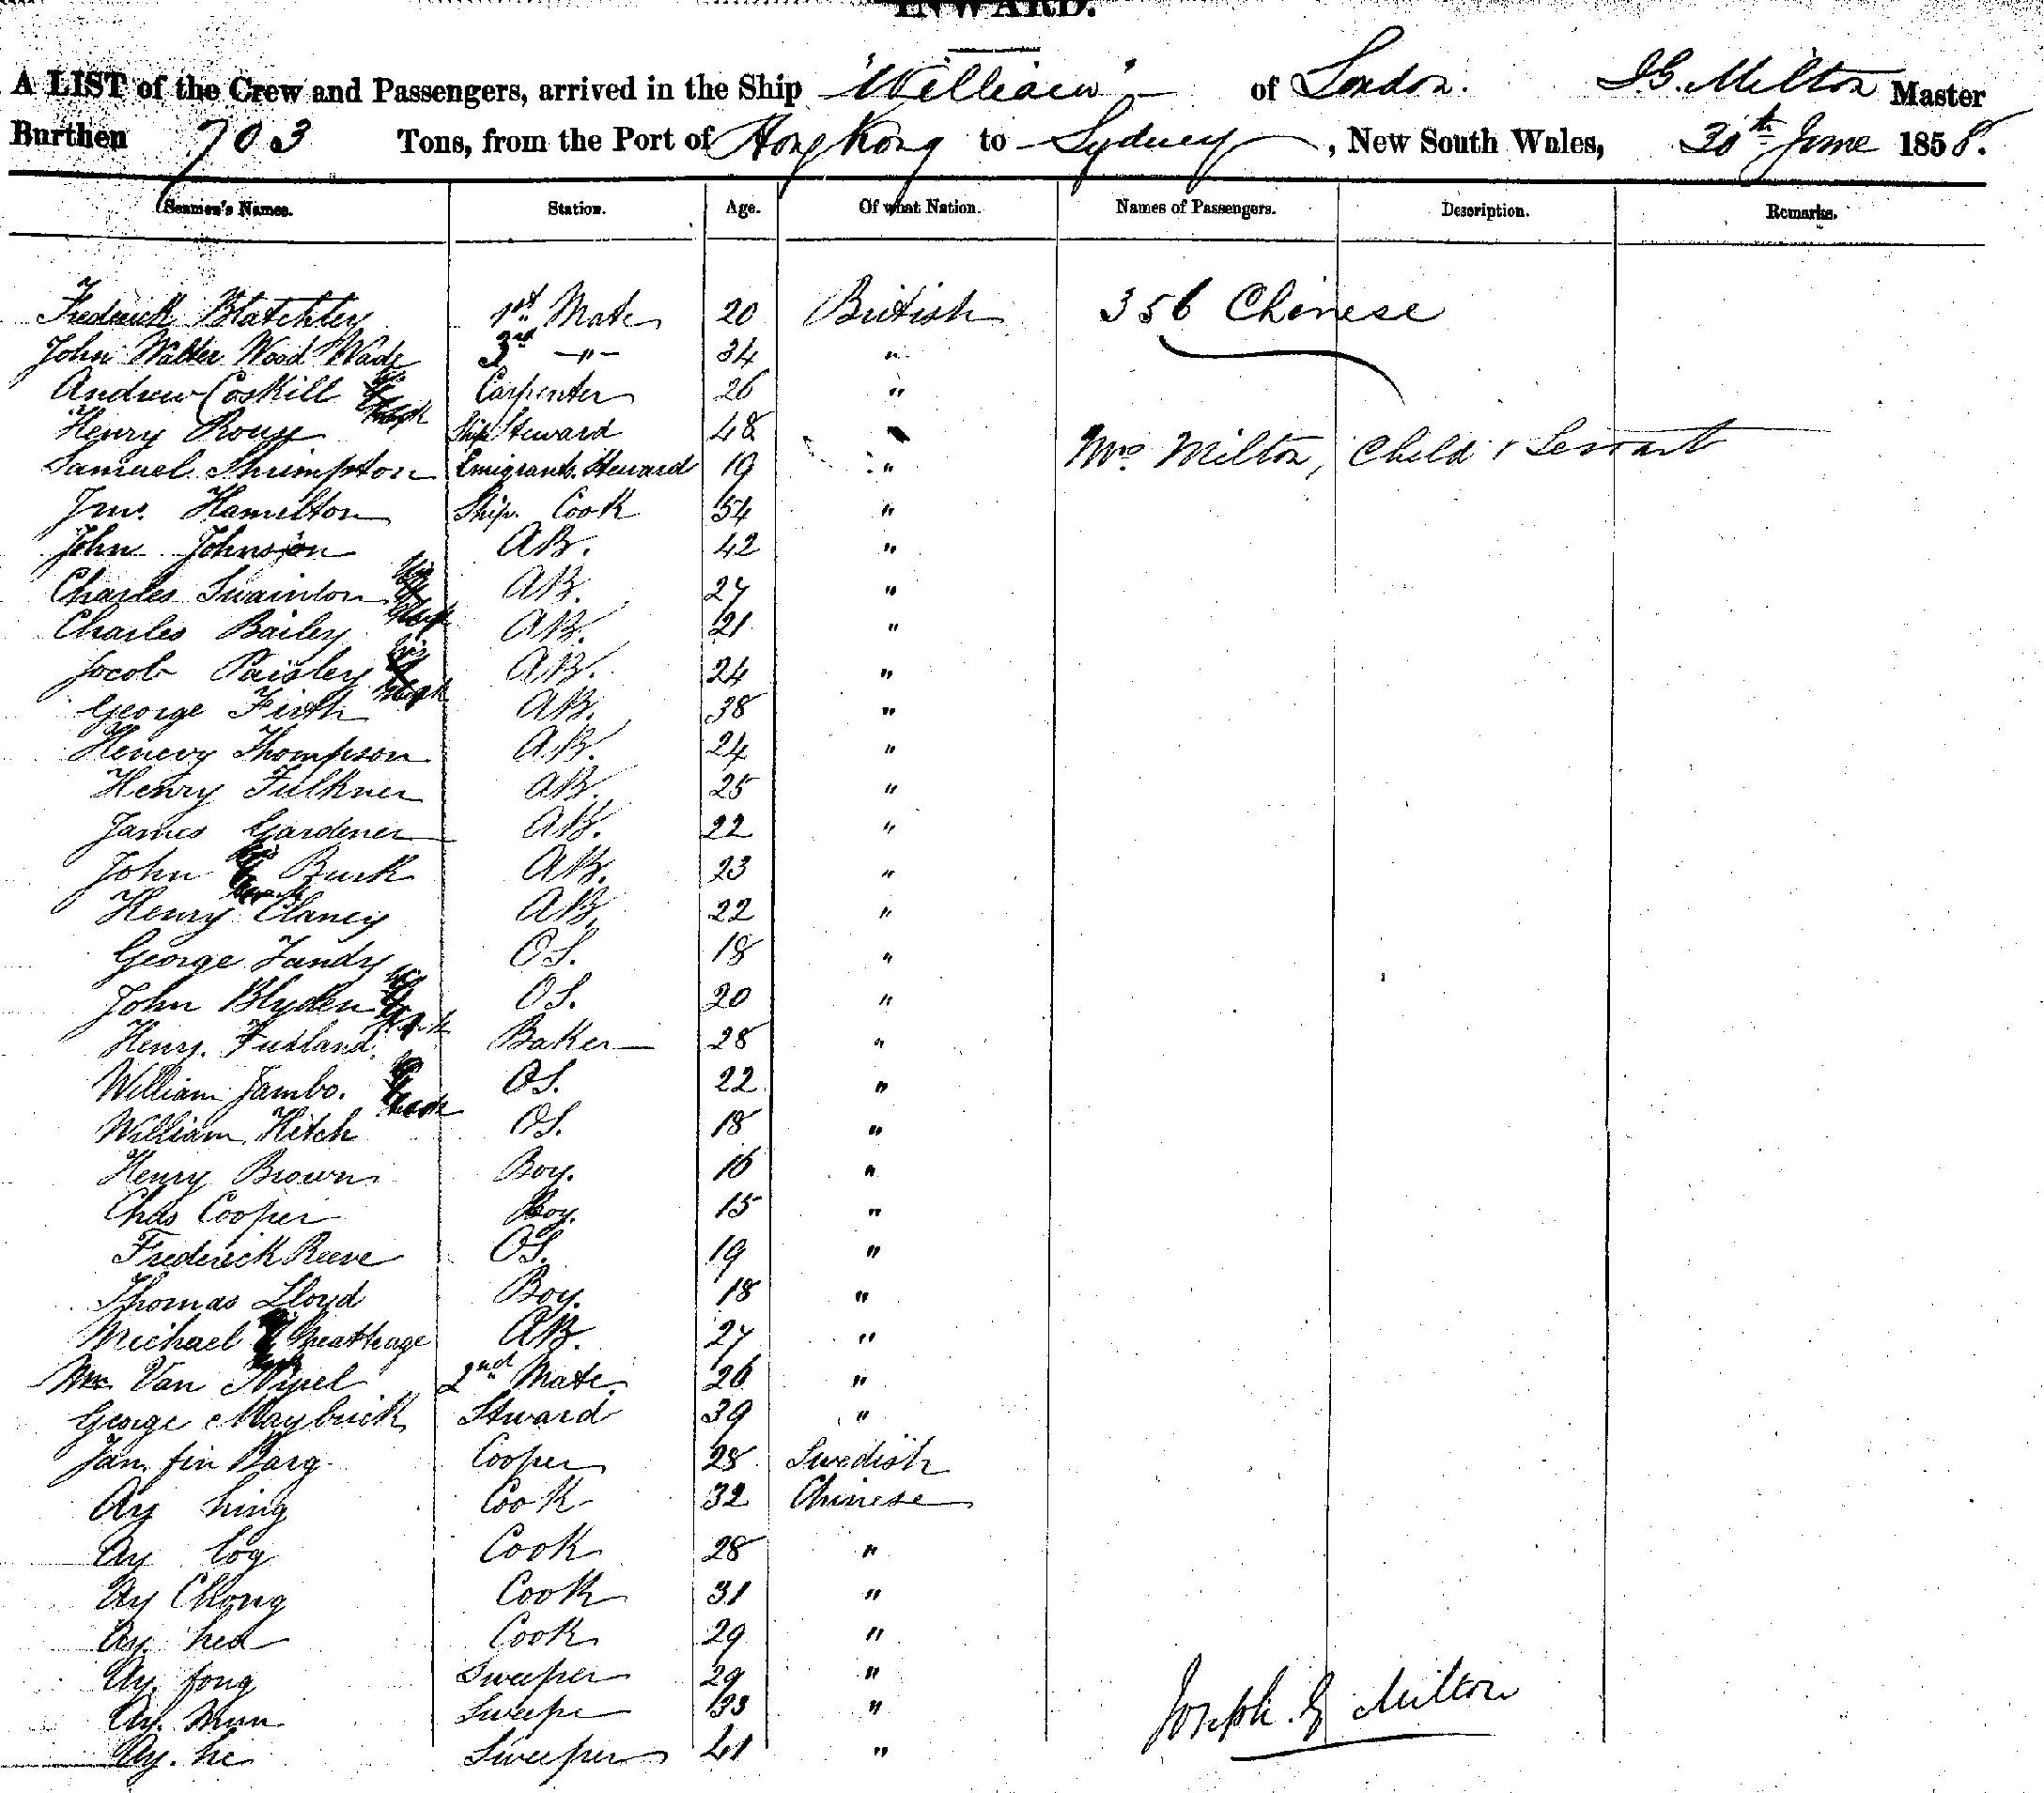 INWARD.
A LIST of the Crew and Passengers, arrived in the Ship "William" of London. J G. Milton Master
Burthen 703 Tons, from the Port of Hong Kong to Sydney, New South Wales, 30th June 1858.
Seamen's Names. Station. Age. Of what Nation. Names of Passengers. Description. Remarks.
Frederick Blatchley 1st Mate 20 British 356 Chinese
John Walter Wood Wade 3rd -"- 34 "
Andrew Coskill Carpenter 26 "
Henry Ship Steward 48 " Mrs Milton, Child & Servant
Samuel Shrimpton Emigrants Steward 19 "
Jno. Hamilton Ship. Cook 54 "
John Johnson AB. 42 "
Charles Swainton AB. 27 "
Charles Bailey AB. 21 "
Jocob Paisley AB. 24 "
George Firth AB. 38 "
Henery Thompson AB. 24 "
Henry Fulkner AB. 25 "
James Gardener AB. 22 "
John Burk AB. 23 "
Henry Clancy AB. 22 "
George Tandy OS. 18 "
John Blyden OS. 20 "
Henry. Baker 28 "
William Jambo. OS. 22 "
William Hitch OS. 18 "
Henry Brown Boy. 16 "
Chas Cooper Boy. 15 "
Frederick Reeve OS. 19 "
Thomas Lloyd Boy. 18 "
Michael AB. 27 "
Mr Van 2nd Mate. 26 "
George Maybrick Steward 39 "
Jan. fin Barg. Cooper 28 Swedish
Ay hing Cook 32 Chinese
Ay Cook 28 "
Ay Chong Cook 31 "
Ay. Cook 29 "
Ay. fong Sweeper 29 "
Ay. Mun Sweeper 33 "
Ay. he Sweeper 41 "
Joseph. G Milton